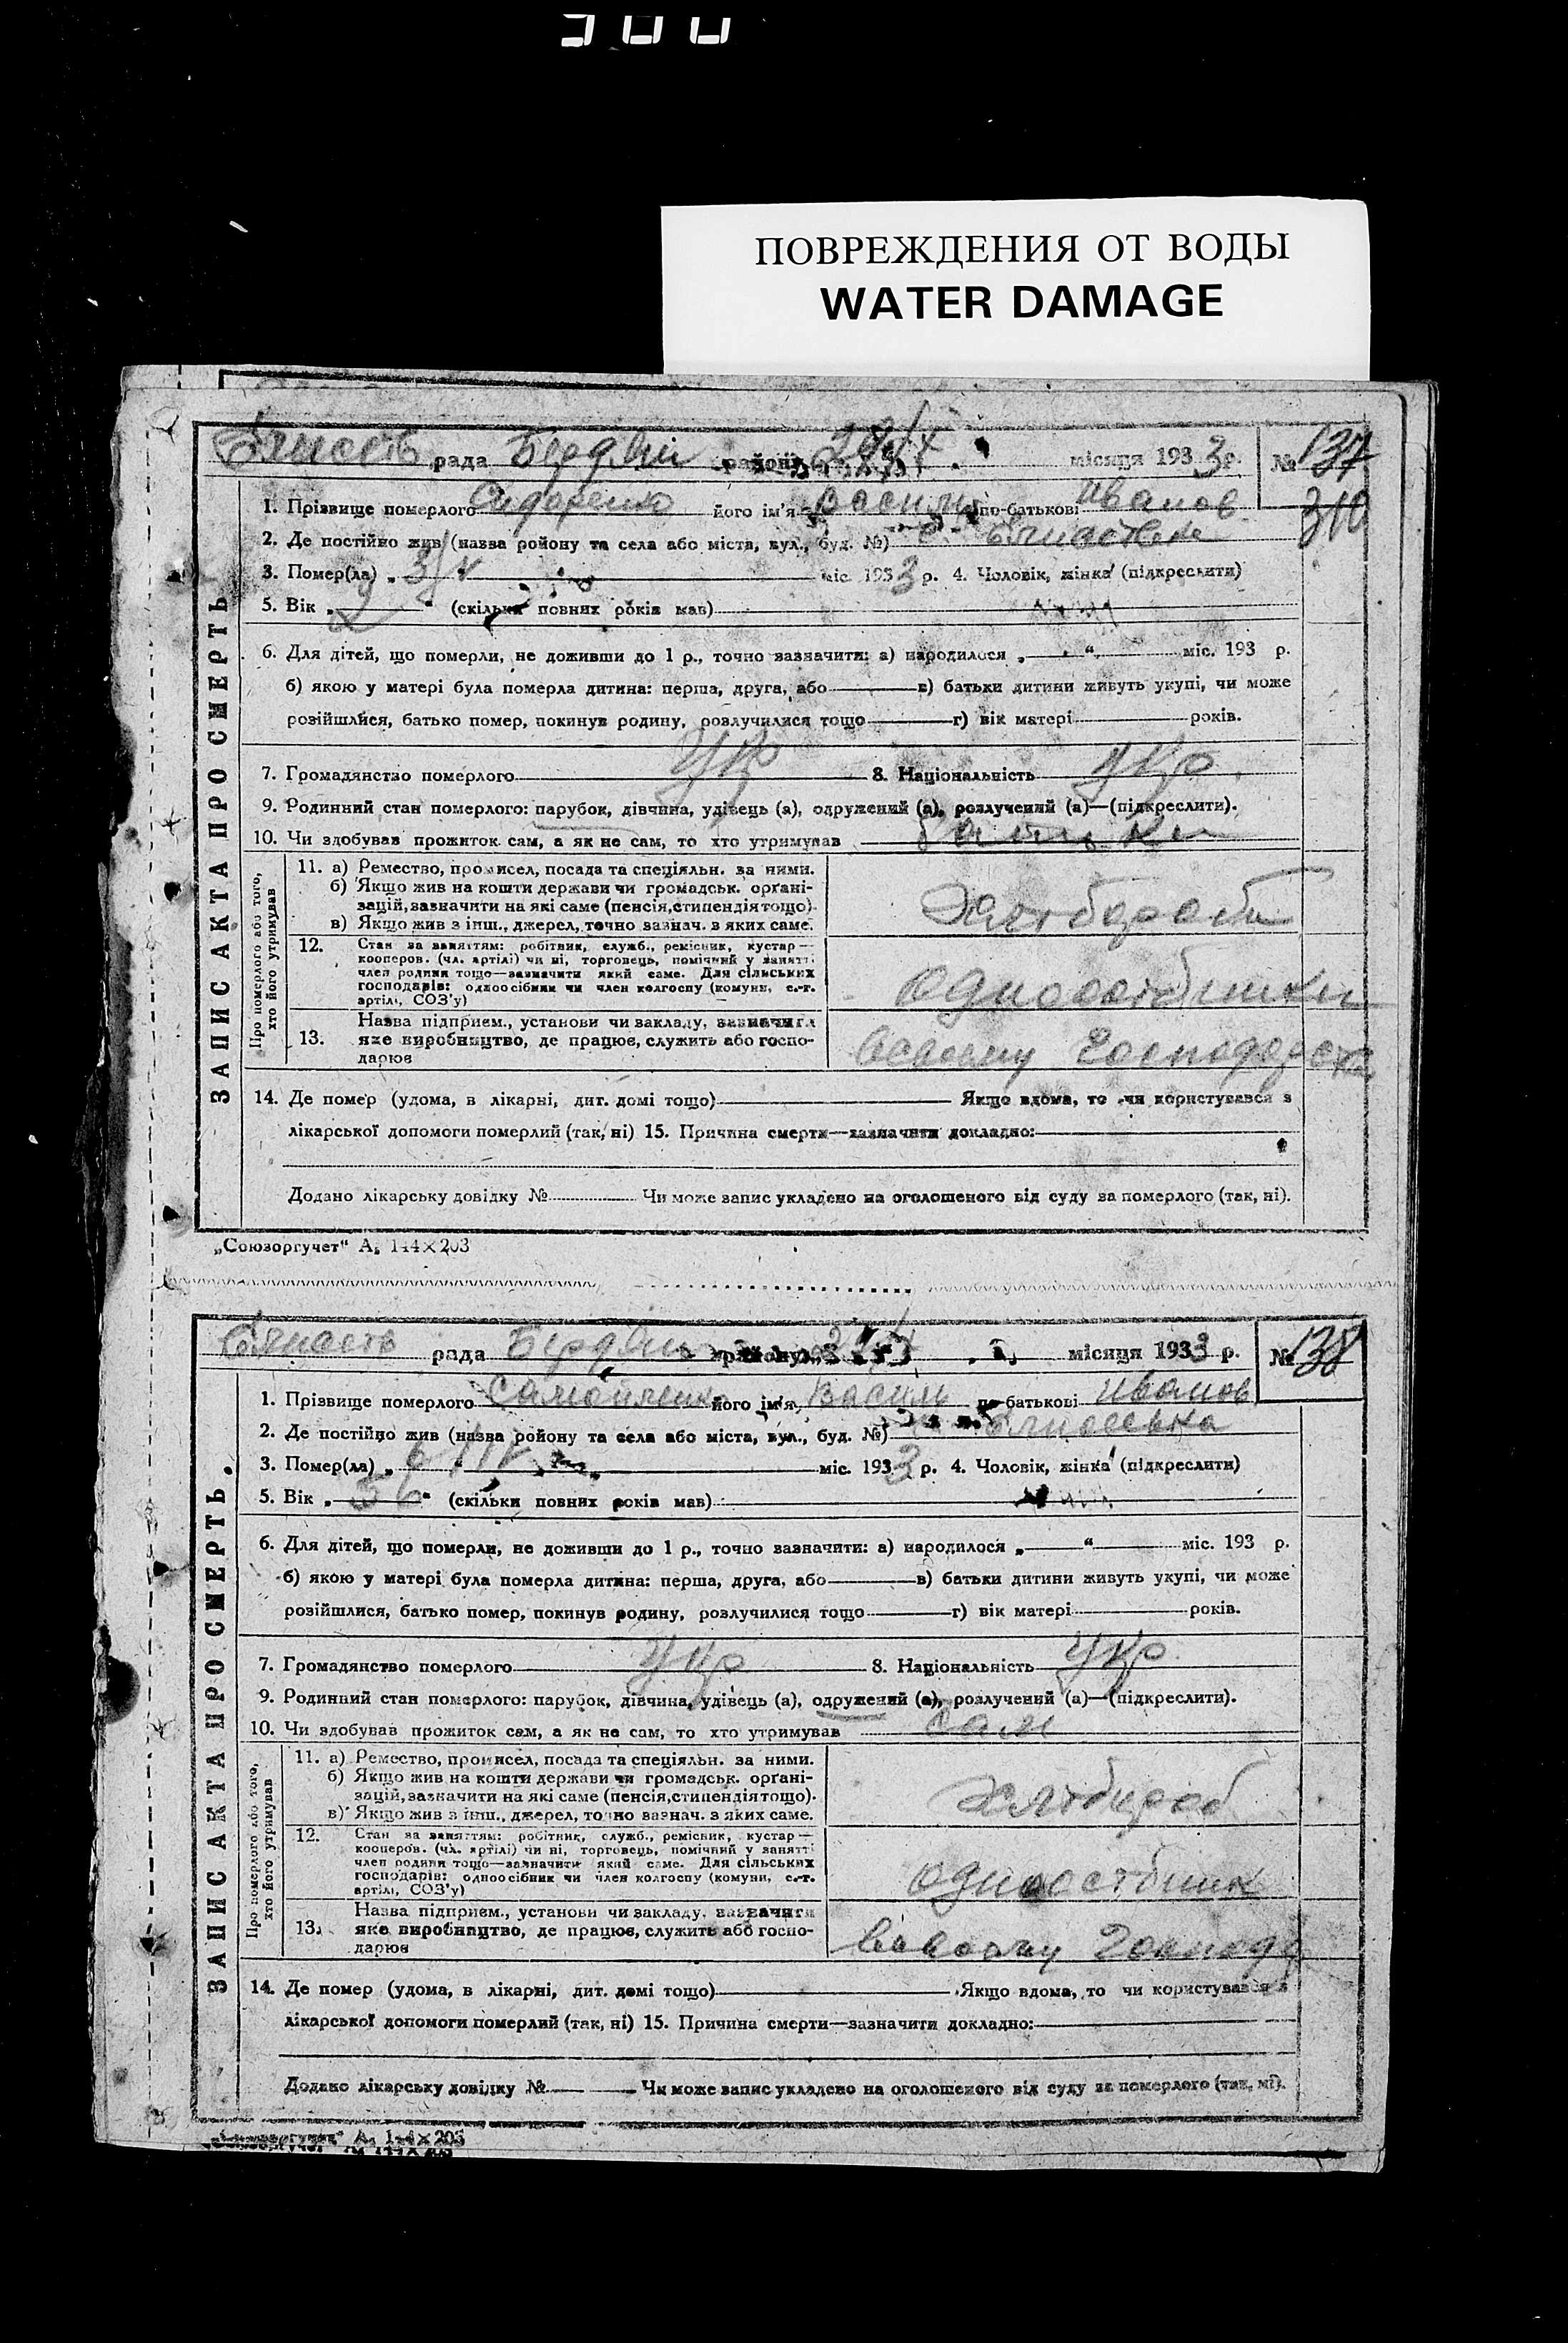 300
ПОВРЕЖДЕНИЯ ОТ ВОДЫ
WATER DAMAGE
рада Бердян району місяця 1933 р. № 137
1. Прізвище померлого Сидоренко його ім'я Василь по-батькові Иванов 310
2. Де постійно жив (назва ройону та села або міста, вул., буд. №)
3. Помер(ла) „ 3/V міс. 1933 р. 4. Чоловік, жінка (підкреслити)
5. Вік „ 2 “ (скільки повних років мав)
6. Для дітей, що померли, не доживши до 1 р., точно зазначити: а) народилося „ “ міс. 193 р.
б) якою у матері була померла дитина: перша, друга, або в) батьки дитини живуть укупі, чи може
розійшлися, батько помер, покинув родину, розлучилися тощо г) вік матері років.
7. Громадянство померлого Укр 8. Національність Укр.
9. Родинний стан померлого: парубок, дівчина, удівець (а), одружений (а), розлучений (а)—(підкреслити).
10. Чи здобував прожиток сам, а як не сам, то хто утримував батьки
ЗАПИС АКТА ПРО СМЕРТЬ
Про померлого або того, хто його утримував
11. а) Ремество, промисел, посада та спеціяльн. за ними.
б) Якщо жив на кошти держави чи громадськ. орґані-
зацій, зазначити на які саме (пенсія, стипендія тощо).
в) Якщо жив з інш., джерел, точно зазнач. з яких саме.
Хлібороби
12. Стан за заняттям: робітник, служб., ремісник, кустар—
кооперов. (чл. артілі) чи ні, торговець, помічний у занятті
член родини тощо—зазначити який саме. Для сільських
господарів: одноосібник чи член колгоспу (комуни, с.-г.
артілі, СОЗ'у)
одноосібники
13. Назва підприєм., установи чи закладу, зазначити
яке виробництво, де працює, служить або госпо-
дарює
в своєму господарстві
14. Де помер (удома, в лікарні, дит. домі тощо) Якщо вдома, то чи користувався з
лікарської допомоги померлий (так, ні) 15. Причина смерти—зазначити докладно:
Додано лікарську довідку № Чи може запис укладено на оголошеного від суду за померлого (так, ні).
„Союзоргучет“ А₅ 144×203
рада Бердян району місяця 1933 р. № 138
1. Прізвище померлого Самойленко його ім'я Василь по-батькові Иванов
2. Де постійно жив (назва ройону та села або міста, вул., буд. №)
3. Помер(ла) „ 6/IV міс. 1933 р. 4. Чоловік, жінка (підкреслити)
5. Вік „ 56 “ (скільки повних років мав)
6. Для дітей, що померли, не доживши до 1 р., точно зазначити: а) народилося „ “ міс. 193 р.
б) якою у матері була померла дитина: перша, друга, або в) батьки дитини живуть укупі, чи може
розійшлися, батько помер, покинув родину, розлучилися тощо г) вік матері років.
7. Громадянство померлого Укр 8. Національність Укр
9. Родинний стан померлого: парубок, дівчина, удівець (а), одружений (а), розлучений (а)—(підкреслити).
10. Чи здобував прожиток сам, а як не сам, то хто утримував сам
ЗАПИС АКТА ПРО СМЕРТЬ.
Про померлого або того, хто його утримував
11. а) Ремество, промисел, посада та спеціяльн. за ними.
б) Якщо жив на кошти держави чи громадськ. орґані-
зацій, зазначити на які саме (пенсія, стипендія тощо).
в) Якщо жив з інш., джерел, точно зазнач. з яких саме.
Хлібороб
12. Стан за заняттям: робітник, служб., ремісник, кустар—
кооперов. (чл. артілі) чи ні, торговець, помічний у занятті
член родини тощо—зазначити який саме. Для сільських
господарів: одноосібник чи член колгоспу (комуни, с.-г.
артілі, СОЗ'у)
одноосібник
13. Назва підприєм., установи чи закладу, зазначити
яке виробництво, де працює, служить або госпо-
дарює
в своєму господ
14. Де помер (удома, в лікарні, дит. домі тощо) Якщо вдома, то чи користувався з
лікарської допомоги померлий (так, ні) 15. Причина смерти—зазначити докладно:
Додано лікарську довідку № Чи може запис укладено на оголошеного від суду за померлого (так, ні).
„Союзоргучет“ А₅ 144×203